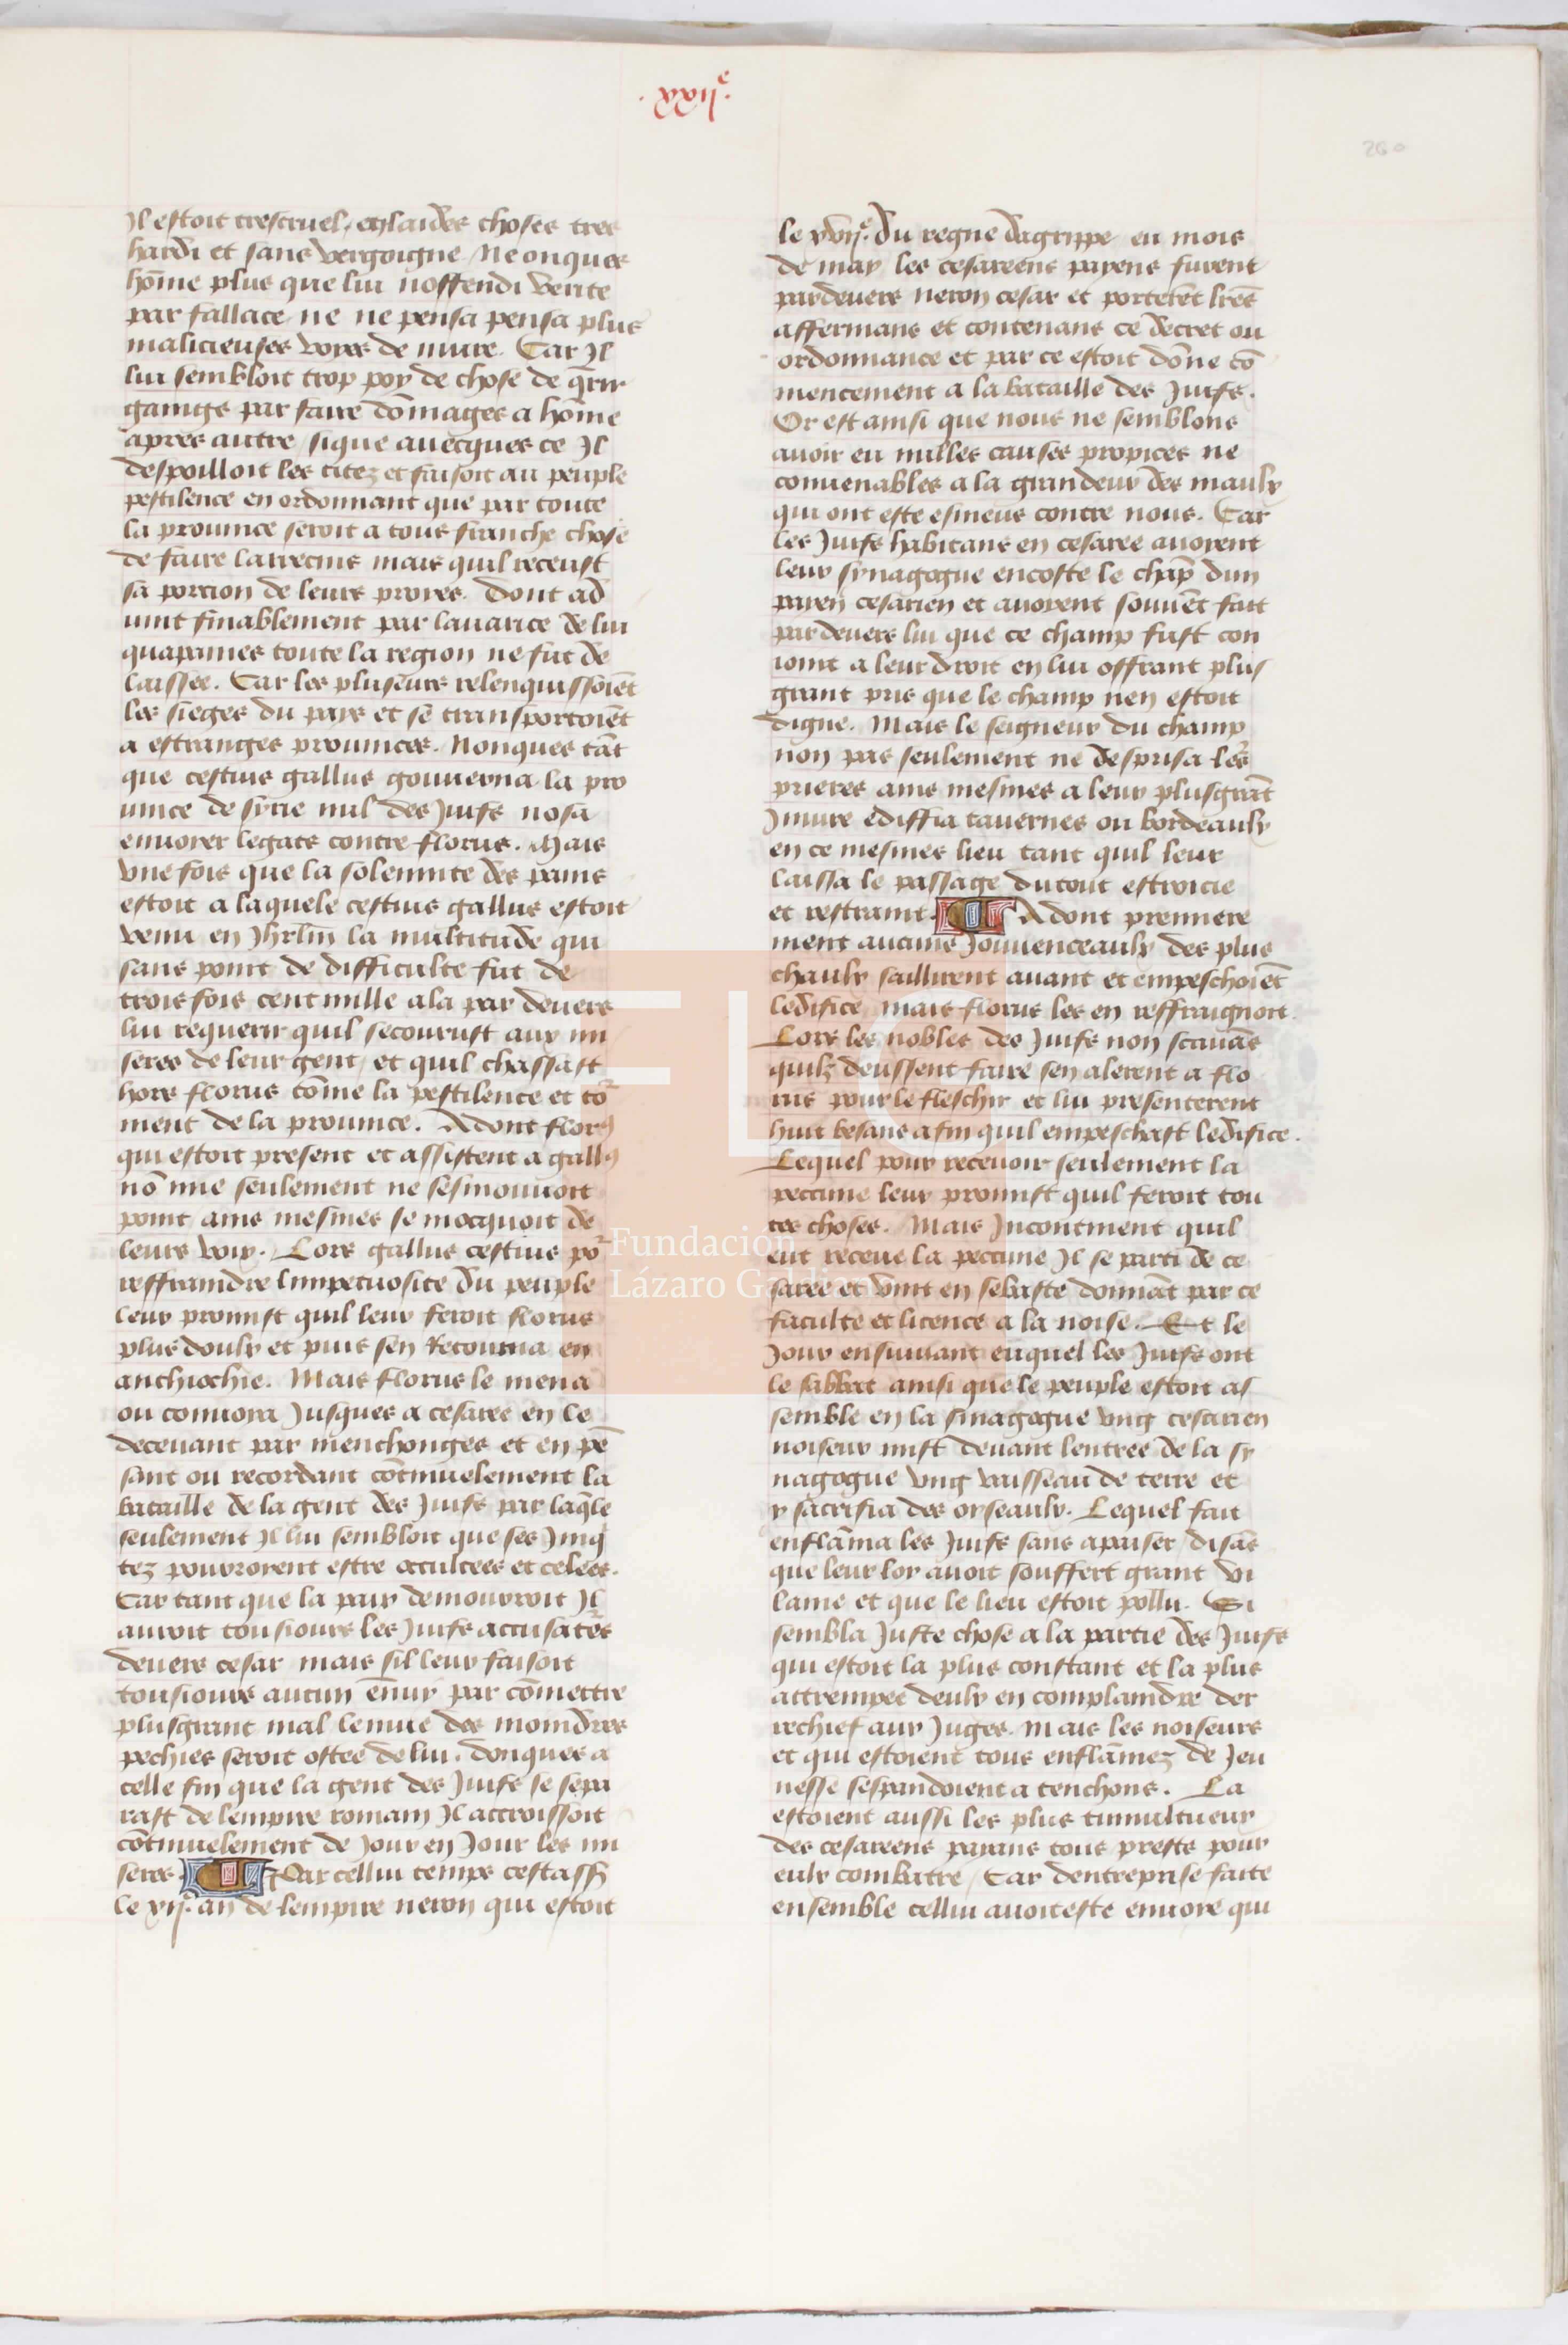 .xxii.e
260
Il estoit trescruel, en laides choses tres
hardi et sans vergoigne Ne onques
hōme plus que lui noffendi verite
par fallace ne ne pensa pensa plus
malicieuses voyes de nuire. Car Il
lui sembloit trop poy de chose de q̄rir
gaings par faire dōmages a hōme
apres autre / sique auecques ce Il
despoilloit les citez et faisoit au peuple
pestilence en ordonnant que par toute
la prouince seroit a tous franche chose
de faire larrecins mais quil receust
sa portion de leurs proyes. Dont ad
uint finablement par lauarice de lui
quapaines toute la region ne fut de
laissee. Car les plusēurs relenquissoiēt
les sieges du pays et se transportoiēt
a estranges prouinces. Nonques tāt
que cestius gallus gouuerna la pro
uince de syrie nul des Juifs nosa
enuoyer legats contre florus. Mais
vne fois que la solennite des pains
estoit a laquele cestius gallus estoit
venu en Jhrlm̄ la multitude qui
sans point de difficulte fut de
trois fois cent mille ala par deuers
lui requerir quil secourust aux mi
seres de leur gent / et quil chassast
hors florus cōme la pestilence et to͛
ment de la prouince. Adont florꝰ
qui estoit present et assistent a gallꝰ
nō mie seulement ne sesmouuoit
point ains mesmes se mocquoit de
leurs voix. Lors gallus cestius po͛
reffraindre limpetuosite du peuple
leur promist quil leur feroit florus
plus doulx et puis sen Retourna en
anchiochie. Mais florus le mena
ou conuoya Jusques a cesaree en le
deceuant par menchonges et en pē
sant ou recordant cōtinuelement la
bataille de la gent des Juifs par laq̄le
seulement Il lui sembloit que ses Iniq̄
tez pouuroyent estre occultees et celees.
Car tant que la paix demourroit Il
auroit tousiours les Juifs accusate͛s
deuers cesar mais sil leur faisoit
tousiours aucun ennuy par cōmettre
plusgrant mal lenuie des moindres
pechies seroit ostee de lui. donques a
celle fin que la gent des Juifs se sepa
rast de lempire romain Il accroissoit
cōtinuelement de Jour en Jour les mi
seres. Par cellui temps cestass̄
le xii.e an de lempire neron qui estoit
le xvii.e du regne dagrippe en mois
de may les cesareens payens furent
pardeuers neron cesar et porterēt lrēs
affermans et contenans ce decret ou
ordonnance et par ce estoit dōne cō
mencement a la bataille des Juifs.
Or est ainsi que nous ne semblons
auoir eu nulles causes propices ne
conuenables a la grandeur des maulx
qui ont este esmeus contre nous. Car
les Juifs habitans en cesaree auoyent
leur synagogue encoste le chāp dun
payen cesarien et auoyent souuēt fait
pardeuers lui que ce champ fust con
ioint a leur droit en lui offrant plus
grant pris que le champ nen estoit
digne. Mais le seigneur du champ
non pas seulement ne desprisa le͛s
prieres ains mesmes a leur plusgrāt
Iniure ediffia tauernes ou bordeaulx
en ce mesmes lieu tant quil leur
laissa le passage du tout estroicie
et restraint. Adont premiere
ment aucuns Jouuenceaulx des plus
chaulx saillirent auant et empeschoiēt
ledifice mais florus les en reffraignoit.
Lors les nobles des Juifs non scauās
quilz deussent faire sen alerent a flo
rus pour le fleschir et lui presenterent
huit besans afin quil empeschast ledifice.
Lequel pour receuoir seulement la
peccune leur promist quil feroit tou
tes choses. Mais Incontinent quil
eut receue la peccune Il se parti de ce
saree et vint en sebaste donnāt par ce
faculte et licence a la noise. Et le
Jour ensuiuant euquel les Juifs ont
le sabbat ainsi que le peuple estoit as
semble en la sinagogue vng cesarien
noiseur mist deuant lentree de la sy
nagogue vng vaisseau de terre et
y sacrifia des oyseaulx. Lequel fait
enflāma les Juifs sans apaiser disās
que leur loy auoit souffert grant vi
lanie et que le lieu estoit pollu. Si
sembla Juste chose a la partie des Juifs
qui estoit la plus constant et la plus
attrempee deulx en complaindre der
rechief aux Juges. mais les noiseurs
et qui estoient tous enflāmez de Jeu
nesse sespandoient a tenchons. La
estoient aussi les plus tumultueux
des cesareens payans tous prests pour
eulx combatre / Car dentreprise faite
ensemble cellui auoit este enuoye qui
Fundación
Lázaro Galdiano